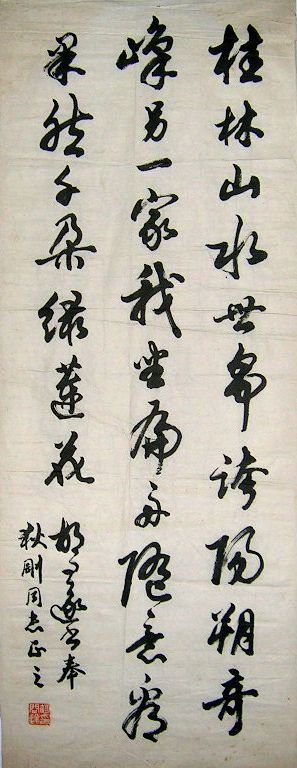 桂林山水世常誇陽朔奇
峰另一家我坐扁舟隨意看
果然千朵綠蓮花
奉
剛同志正之